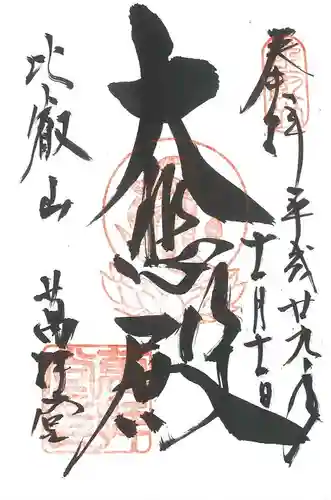 奉拝
平成廿九年
十一月十一日
大悲殿
比叡山
萬拝堂